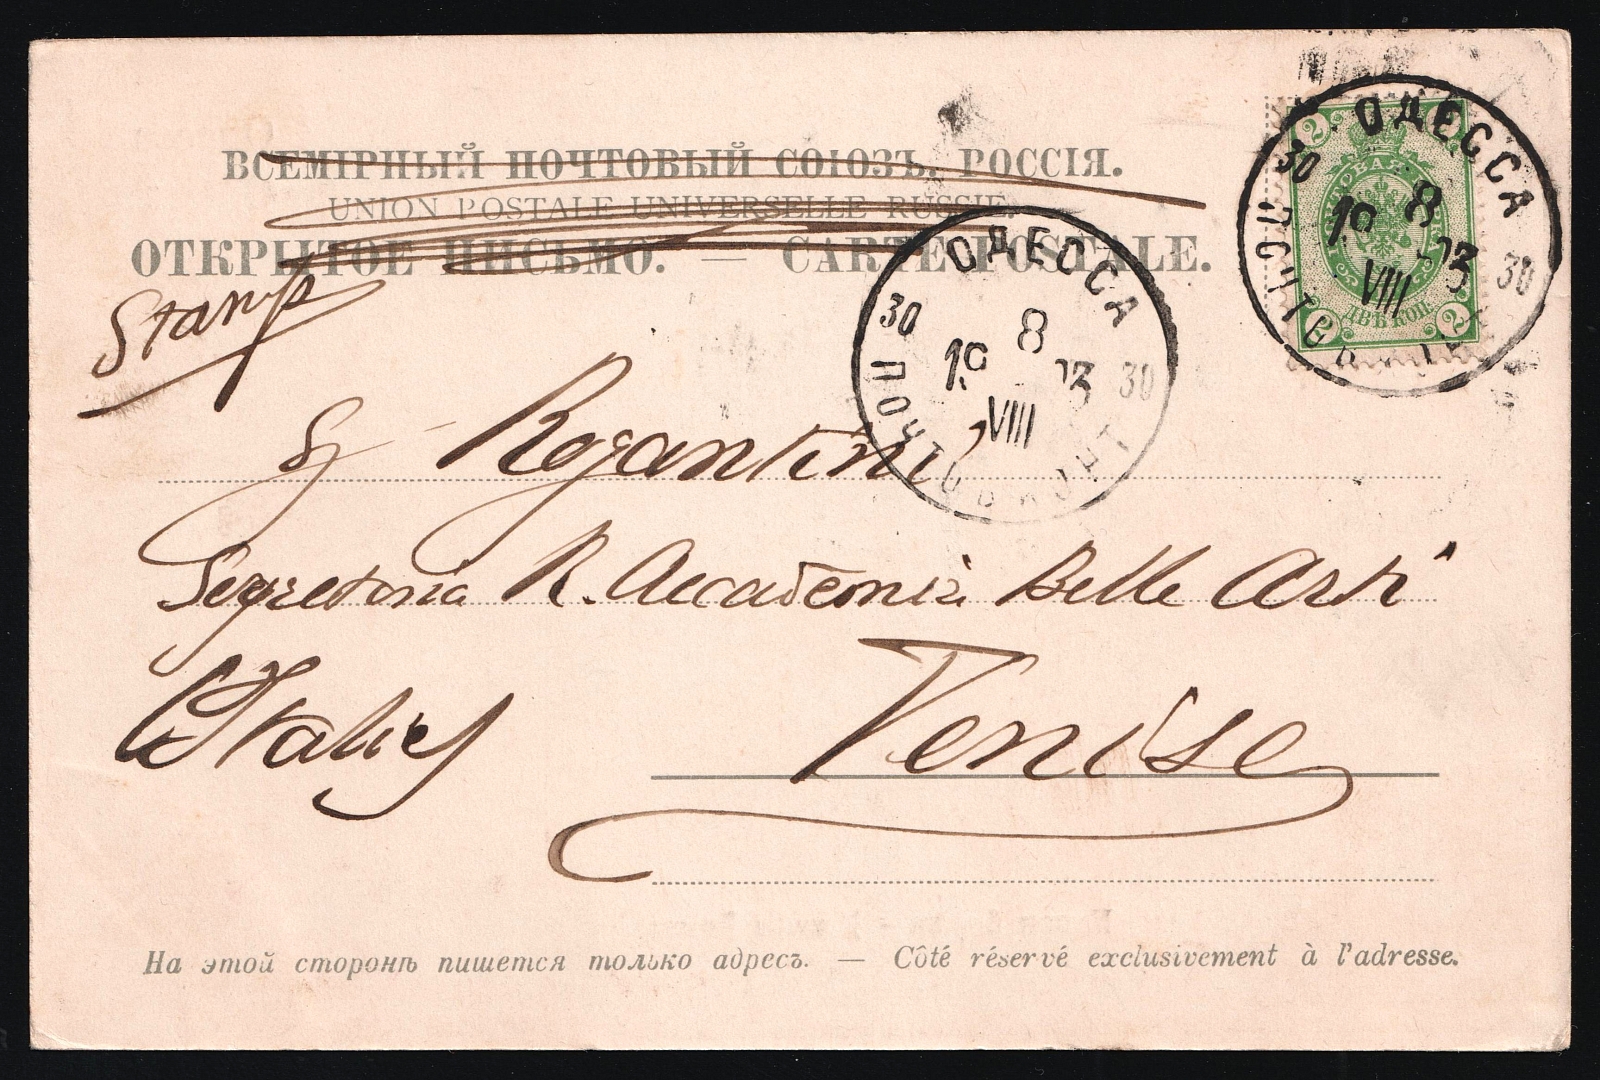 ВСЕМІРНЫЙ ПОЧТОВЫЙ СОЮЗЪ. РОССІЯ.
UNION POSTALE UNIVERSELLE RUSSIE.
ОТКРЫТОЕ ПИСЬМО. — CARTE POSTALE.
Stamp
ОДЕССА
30 8 30
19 03
VIII
ПОЧТ
ОДЕССА
30 8 30
19 03
VIII
ПОЧТОВ
2 2
ДВѢ КОП.
Sg Rogantini
Segreteria R. Accademia Belle Arti
Italie Venise
На этой сторонѣ пишется только адресъ. — Côté réservé exclusivement à l'adresse.